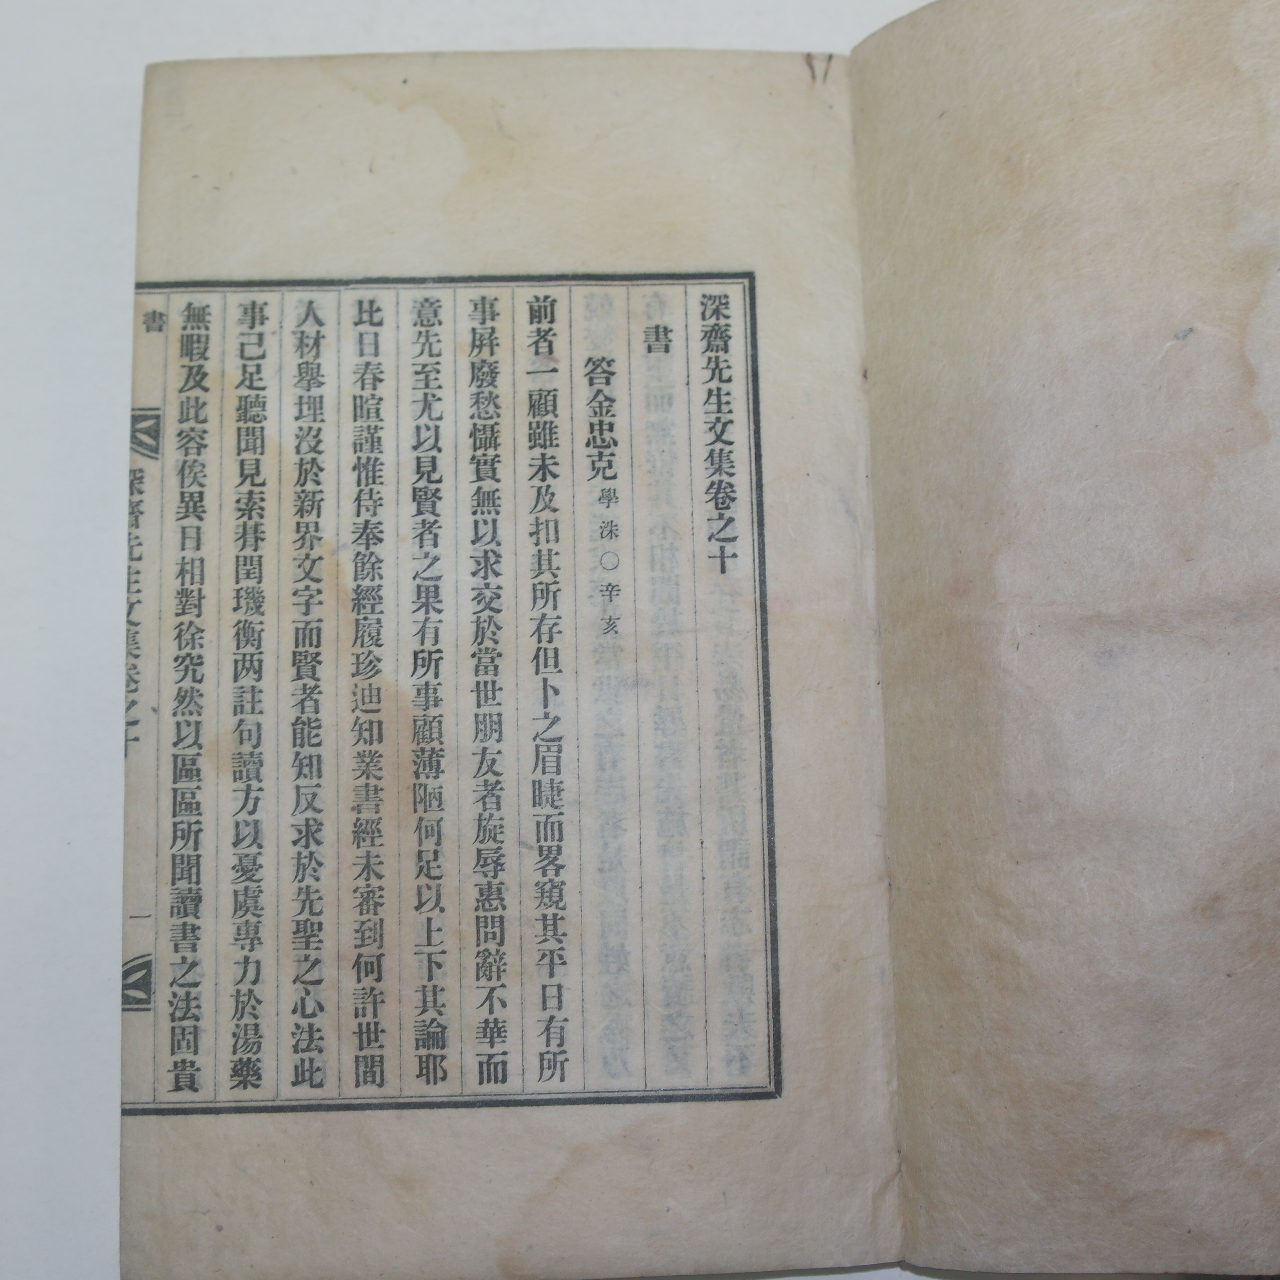 深齋先生文集卷之十
書
答金忠克 學洙○辛亥
前者一顧雖未及扣其所存但卜之眉睫而畧窺其平日有所
事屛廢愁懾實無以求交於當世朋友者旋辱惠問辭不華而
意先至尤以見賢者之果有所事顧薄陋何足以上下其論耶
比日春暄謹惟侍奉餘經履珍迪知業書經未審到何許世間
人材擧埋沒於新界文字而賢者能知反求於先聖之心法此
事己足聽聞見索朞閏璣衡两註句讀方以憂虞專力於湯藥
無暇及此容俟異日相對徐究然以區區所聞讀書之法固貴
書
深齋先生文集卷之十
一